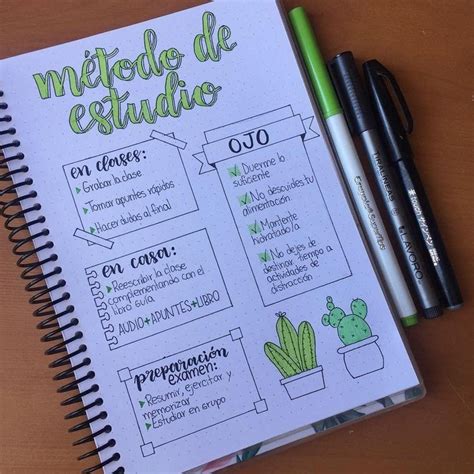 método de
estudio
en clases:
Grabar la clase
Tomar apuntes rápidos
Hacer dudas al final
en casa:
Reescribir la clase
complementando con el
libro guía
AUDIO+APUNTES+LIBRO
preparación
examen:
Resumir, ejercitar y
memorizar
Estudiar en grupo
OJO
Duerme lo
suficiente
No descuides tu
alimentación
Mantente
hidratado/a
No dejes de
destinar tiempo a
actividades de
distracción
TIRALINEAS
LAVORO